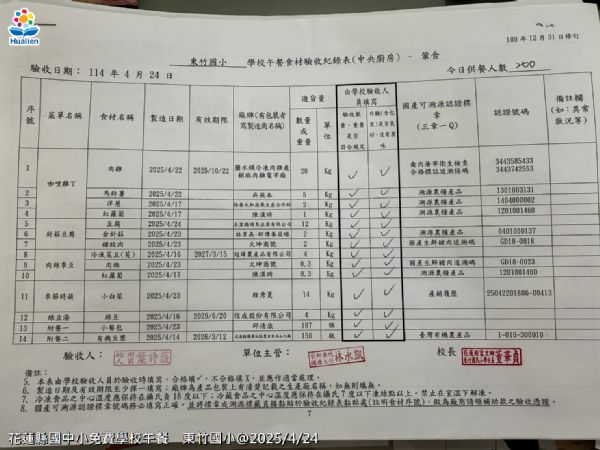 Hualien
109年12月31日修訂
東竹國小 學校午餐食材驗收紀錄表(中央廚房) - 葷食
驗收日期： 114 年 4 月 24 日 今日供餐人數 200
序號 菜單名稱 食材名稱 製造日期 有效期限 廠牌(有包裝者寫製造商名稱) 進貨量 由學校驗收人員填寫 國產可溯源認證標章(三章一Q) 認證號碼 備註欄(如:異常狀況等)
數量或重量 單位 驗收數量、重量是否符合規定 外觀(含包裝)是否良好、沒有異味
1 咖哩雞丁 肉雞 2025/4/22 2025/10/22 20 Kg ✓ ✓ 禽肉屠宰衛生檢查合格標誌追溯條碼 3443585433 3443742553
2 馬鈴薯 2025/4/22 5 Kg ✓ ✓ 溯源農糧產品 1301003131
3 洋蔥 2025/4/17 2 Kg ✓ ✓ 溯源農糧產品 1404000002
4 紅蘿蔔 2025/4/17 陳漢琦 1 Kg ✓ ✓ 溯源農糧產品 1201001460
5 菇菇豆腐 豆腐 2025/4/24 12 Kg ✓ ✓
6 金針菇 2025/4/23 2 Kg ✓ ✓ 溯源農糧產品 0401000137
7 豬絞肉 2025/4/23 火坤商號 1 Kg ✓ ✓ 國產生鮮豬肉追溯碼 GD18-0018
8 肉絲季豆 冷凍菜豆(莢) 2025/4/16 2027/3/15 冠緯農產品有限公司 9 Kg ✓ ✓
9 肉絲 2025/4/23 火坤商號 0.3 Kg ✓ ✓ 國產生鮮豬肉追溯碼 GD18-0023
10 紅蘿蔔 2025/4/17 陳漢琦 0.3 Kg ✓ ✓ 溯源農糧產品 1201001460
11 季節時蔬 小白菜 2025/4/23 程秀夏 14 Kg ✓ ✓ 產銷履歷 25042201806-00413
12 綠豆湯 綠豆 2025/4/16 2029/6/20 信成股份有限公司 4 Kg ✓ ✓
13 附餐一 小餐包 2025/4/23 邱清滋 187 個 ✓ ✓
14 附餐二 有機豆漿 2025/4/14 2026/3/12 150 瓶 ✓ ✓ 臺灣有機農產品 1-010-300910
驗收人： 單位主管： 林永凱 校長： 董肇貞
備註：
5. 本表由學校驗收人員於驗收時填寫，合格填✓，不合格填1，並應作適當處理。
6. 製造日期及有效期限至少擇一填寫；廠牌為產品包裝上有清楚記載之生產廠名稱，如無則填無。
7. 冷凍食品之中心溫度應保持在攝氏負18度以下；冷藏食品之中心溫度應保持在攝氏7度以下凍結點以上。禁止在室溫下解凍。
8. 國產可溯源認證標章號碼務必填寫正確，並將標章或溯源標籤直接黏貼於驗收紀錄表黏貼處(註明食材序號)，做為廠商請領補助款之驗收憑證。
7
花蓮縣國中小免費學校午餐 東竹國小@2025/4/24